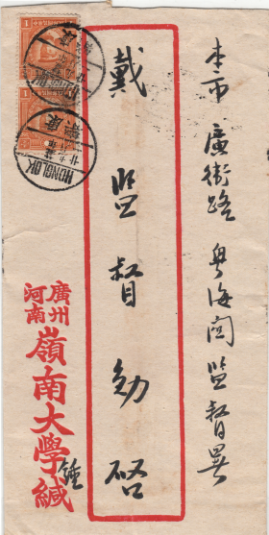 本市廣衛路粤海関監督署
戴監督勉啓
廣州
河南
嶺南大學緘
鍾
HONGLOK
康樂
1
1